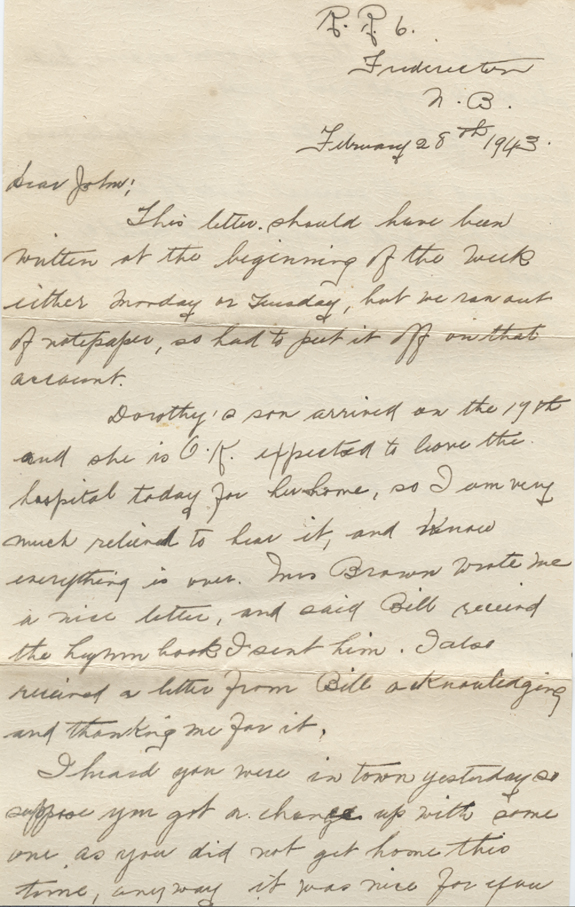 R. R. 6.
Fredericton
N. B.
February 28th 1943.
Dear John;
This letter should have been
written at the beginning of the week
either Monday or Tuesday, but we ran out
of notepaper, so had to put it off on that
account.
Dorothy's son arrived on the 17th
and she is O.K. expected to leave the
hospital today for her home, so I am very
much relieved to hear it, and know
everything is over. Mrs Brown wrote me
a nice letter, and said Bill received
the hymn book I sent him. I also
received a letter from Bill acknowledging
and thanking me for it.
I heard you were in town yesterday so
suppose you got a change up with some
one as you did not get home this
time, anyway it was nice for you